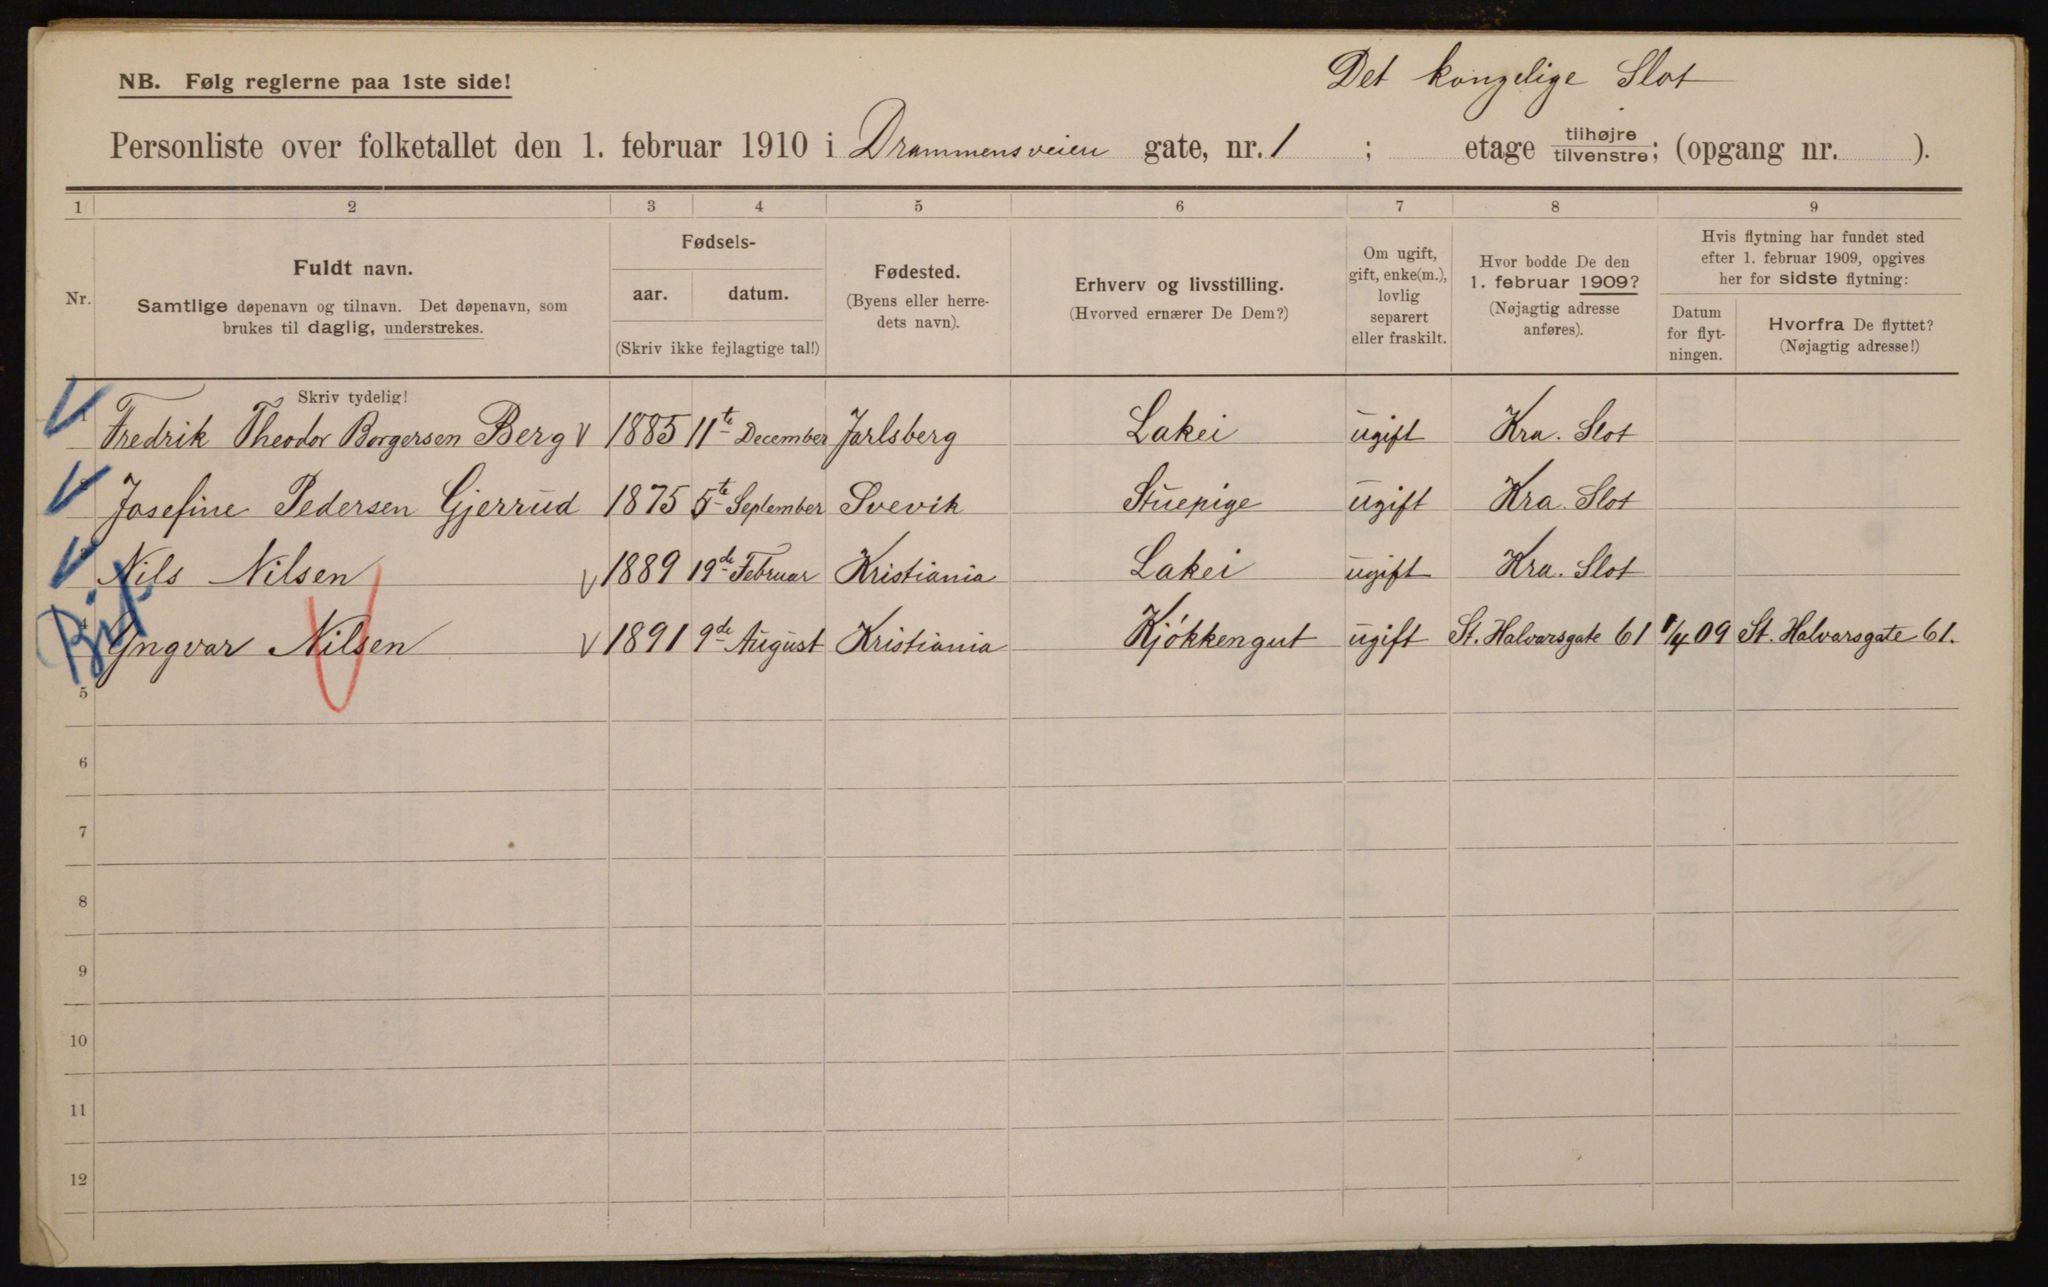 Det kongelige Slot
NB. Følg reglerne paa 1ste side!
Personliste over folketallet den 1. februar 1910 i Drammensveien gate, nr. 1 ; etage tilhøjre/tilvenstre; (opgang nr. ).
1 2 3 4 5 6 7 8 9
Nr.
Fuldt navn.
Samtlige døpenavn og tilnavn. Det døpenavn, som
brukes til daglig, understrekes.
Skriv tydelig!
Fødsels-
aar. datum.
(Skriv ikke fejlagtige tal!)
Fødested.
(Byens eller herre-
dets navn).
Erhverv og livsstilling.
(Hvorved ernærer De Dem?)
Om ugift,
gift, enke(m.),
lovlig
separert
eller fraskilt.
Hvor bodde De den
1. februar 1909?
(Nøjagtig adresse
anføres).
Hvis flytning har fundet sted
efter 1. februar 1909, opgives
her for sidste flytning:
Datum
for flyt-
ningen.
Hvorfra De flyttet?
(Nøjagtig adresse!)
1 Fredrik Theodor Borgersen Berg V 1885 11te December Jarlsberg Lakei ugift Kra. Slot
Josefine Pedersen Gjerrud 1875 5te September Svevik Stuepige ugift Kra. Slot
Nils Nilsen V 1889 19de Februar Kristiania Lakei ugift Kra. Slot
4 Yngvar Nilsen V 1891 9de August Kristiania Kjökkengut ugift St. Halvarsgate 61 1/4 09 St. Halvarsgate 61.
5
6
7
8
9
10
11
12